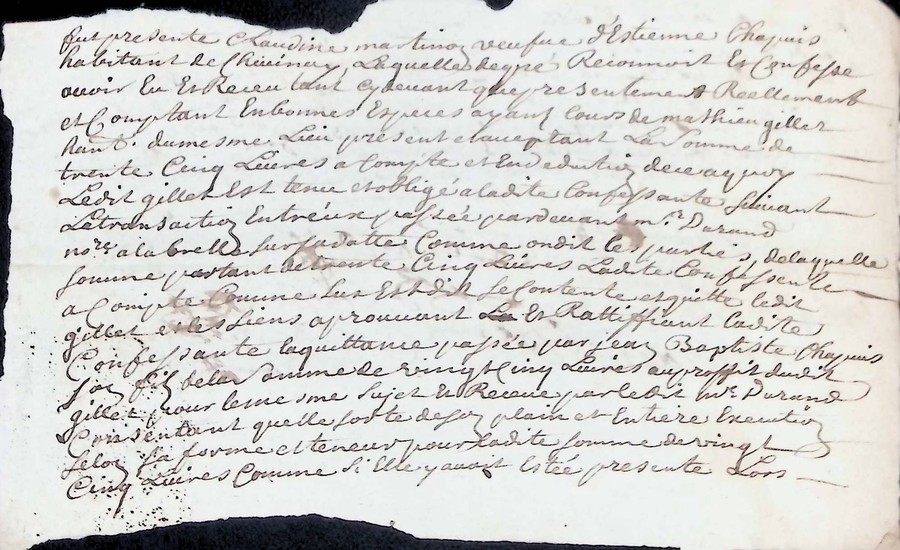 fut presente Claudine martinon veufue d'Estienne Chapuis
habitant de Chivinay Laquelle de gré Reconnoit Et Confesse
avoir Eu Et Receu tant Cydevant que presentement Reellement
et Comptant En bonnes Especes ayant Cours de mathieu gillet
hant. du mesme Lieu present et acceptant La Somme de
trente Cinq Livres a Compte et En deduction de ce a quoy
Ledit gillet Est tenu et obligé a ladite Confessante suivant
Letransaction Entr'eux passée pardevant mr. Durand
nore. a la brelle sur sa datte Comme ondit les parties, de laquelle
somme partant de trente Cinq Livres Ladite Confessente
a Compte Comme sus Est dit se Contente et quitte ledit
gillet et les siens aprouvant Et Rattiffiant ladite
Confessante laquittance passée par jean Baptiste Chapuis
son fils de la Somme de vingt Cinq Livres au proffit dudit
gillet pour le mesme sujet Et Receue par ledit mr. Durand
Consentant quelle sorte de son plain et Entiere Execution
selon sa forme et teneur pour ladite somme de vingt
Cinq Livres Comme si Elle y avoit Estée presente Lors